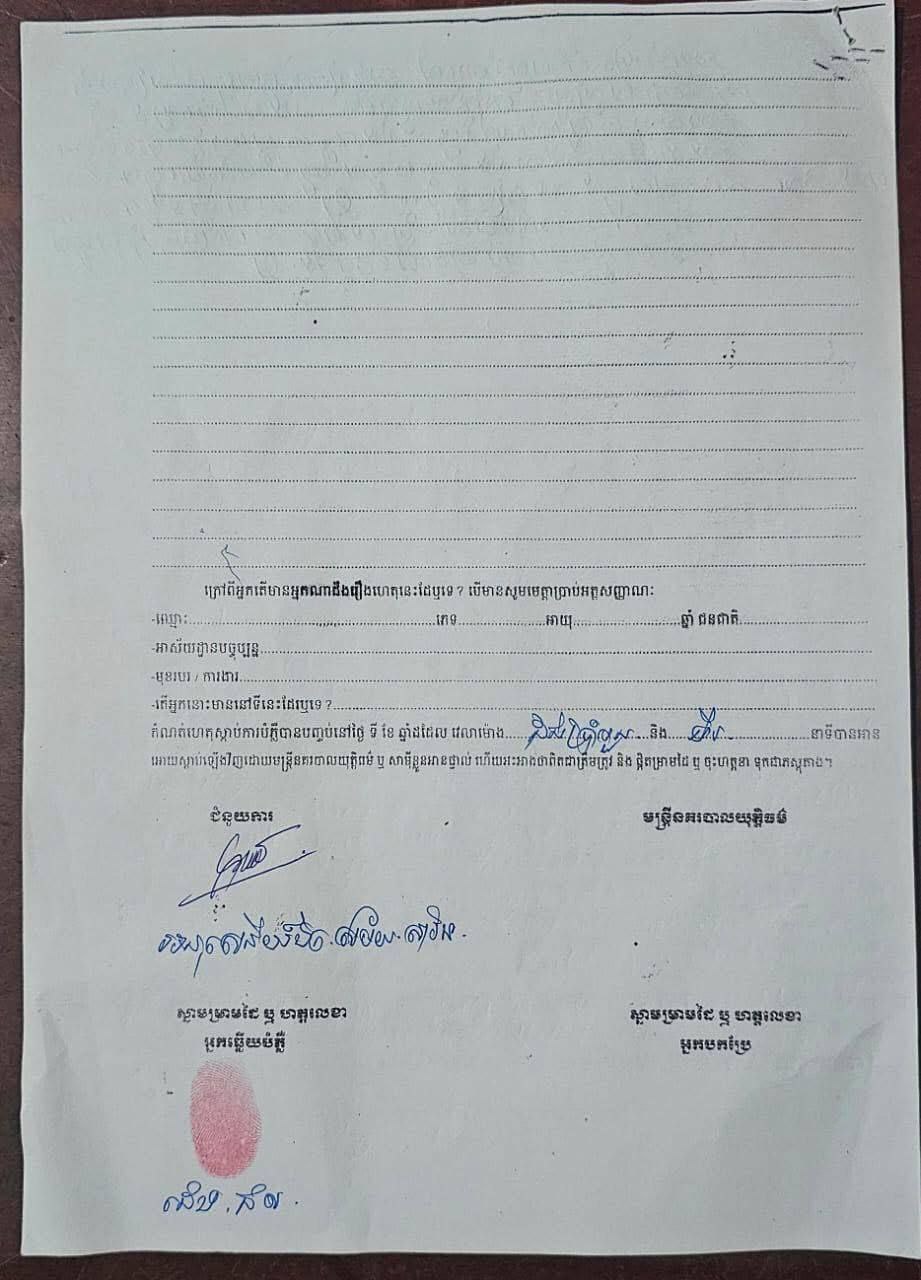 ក្រៅពីអ្នកតើមានអ្នកណាដឹងរឿងហេតុនេះដែឬទេ? បើមានសូមមេត្តាប្រាប់អត្តសញ្ញាណ:
-ឈ្មោះ..........ភេទ..........អាយុ..........ឆ្នាំ ជនជាតិ..........
-អាស័យដ្ឋានបច្ចុប្បន្ន..........
-មុខរបរ / ការងារ..........
-តើអ្នកនោះមាននៅទីនេះដែរឬទេ?..........
កំណត់ហេតុស្តាប់ការបំភ្លឺបានបញ្ចប់នៅថ្ងៃ ទី ខែ ឆ្នាំដដែល វេលាម៉ោង..........និង..........នាទីបានអាន
អោយស្តាប់ឡើងវិញដោយមន្ត្រីនគរបាលយុត្តិធម៌ ឬ សាម៉ីខ្លួនអានផ្ទាល់ ហើយអះអាងថាពិតជាត្រឹមត្រូវ និង ផ្តិតម្រាមដៃ ឬ ចុះហត្ថលេខា ទុកជាភស្តុតាង។
ជំនួយការ
មន្ត្រីនគរបាលយុត្តិធម៌
ស្នាមម្រាមដៃ ឬ ហត្ថលេខា
ស្នាមម្រាមដៃ ឬ ហត្ថលេខា
អ្នកឆ្លើយបំភ្លឺ
អ្នកបកប្រែ